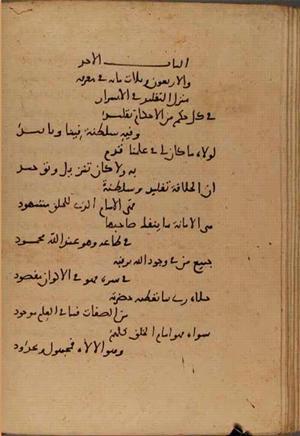 الباب الاحد
والاربعون وثلاث مائة في معرفة
منزل التقليد في الاسرار
في كل حكم من الاحكام تقليد
وفيه سلطنة فينا وتاييد
لولاه ما كان لي في علمنا قدم
به ولا كان تنزيل وتوحيد
ان الخلافة تقليد وسلطنة
من الامام الذي للخلق مشهود
هي الامانة ما ينفك صاحبها
في طاعة وهو عند الله محمود
جميع من في وجود الله يرقبه
في سره فهو في الاكوان مقصود
حضرته
من الصفات فما في العلم موجود
سواه فهو امام الخلق كلهم
وهو الاله فمجهول ومحدود